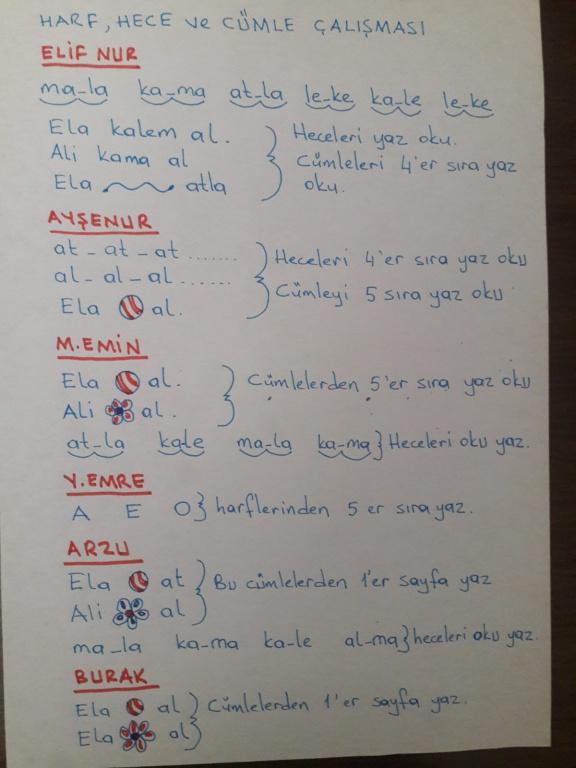 HARF, HECE ve CÜMLE ÇALIŞMASI
ELİF NUR
ma-la ka-ma at-la le-ke ka-le le-ke
Ela kalem al. } Heceleri yaz oku.
Ali kama al Cümleleri 4'er sıra yaz
Ela atla oku.
AYŞENUR
at - at - at ....... } Heceleri 4'er sıra yaz oku
al - al - al ......
Ela al. Cümleyi 5 sıra yaz oku
M.EMİN
Ela al. } Cümlelerden 5'er sıra yaz oku
Ali al.
at-la ka-le ma-la ka-ma } Heceleri oku yaz.
Y.EMRE
A E O } harflerinden 5 er sıra yaz.
ARZU
Ela at } Bu cümlelerden 1'er sayfa yaz
Ali al
ma-la ka-ma ka-le al-ma } heceleri oku yaz.
BURAK
Ela al } Cümlelerden 1'er sayfa yaz.
Ela al